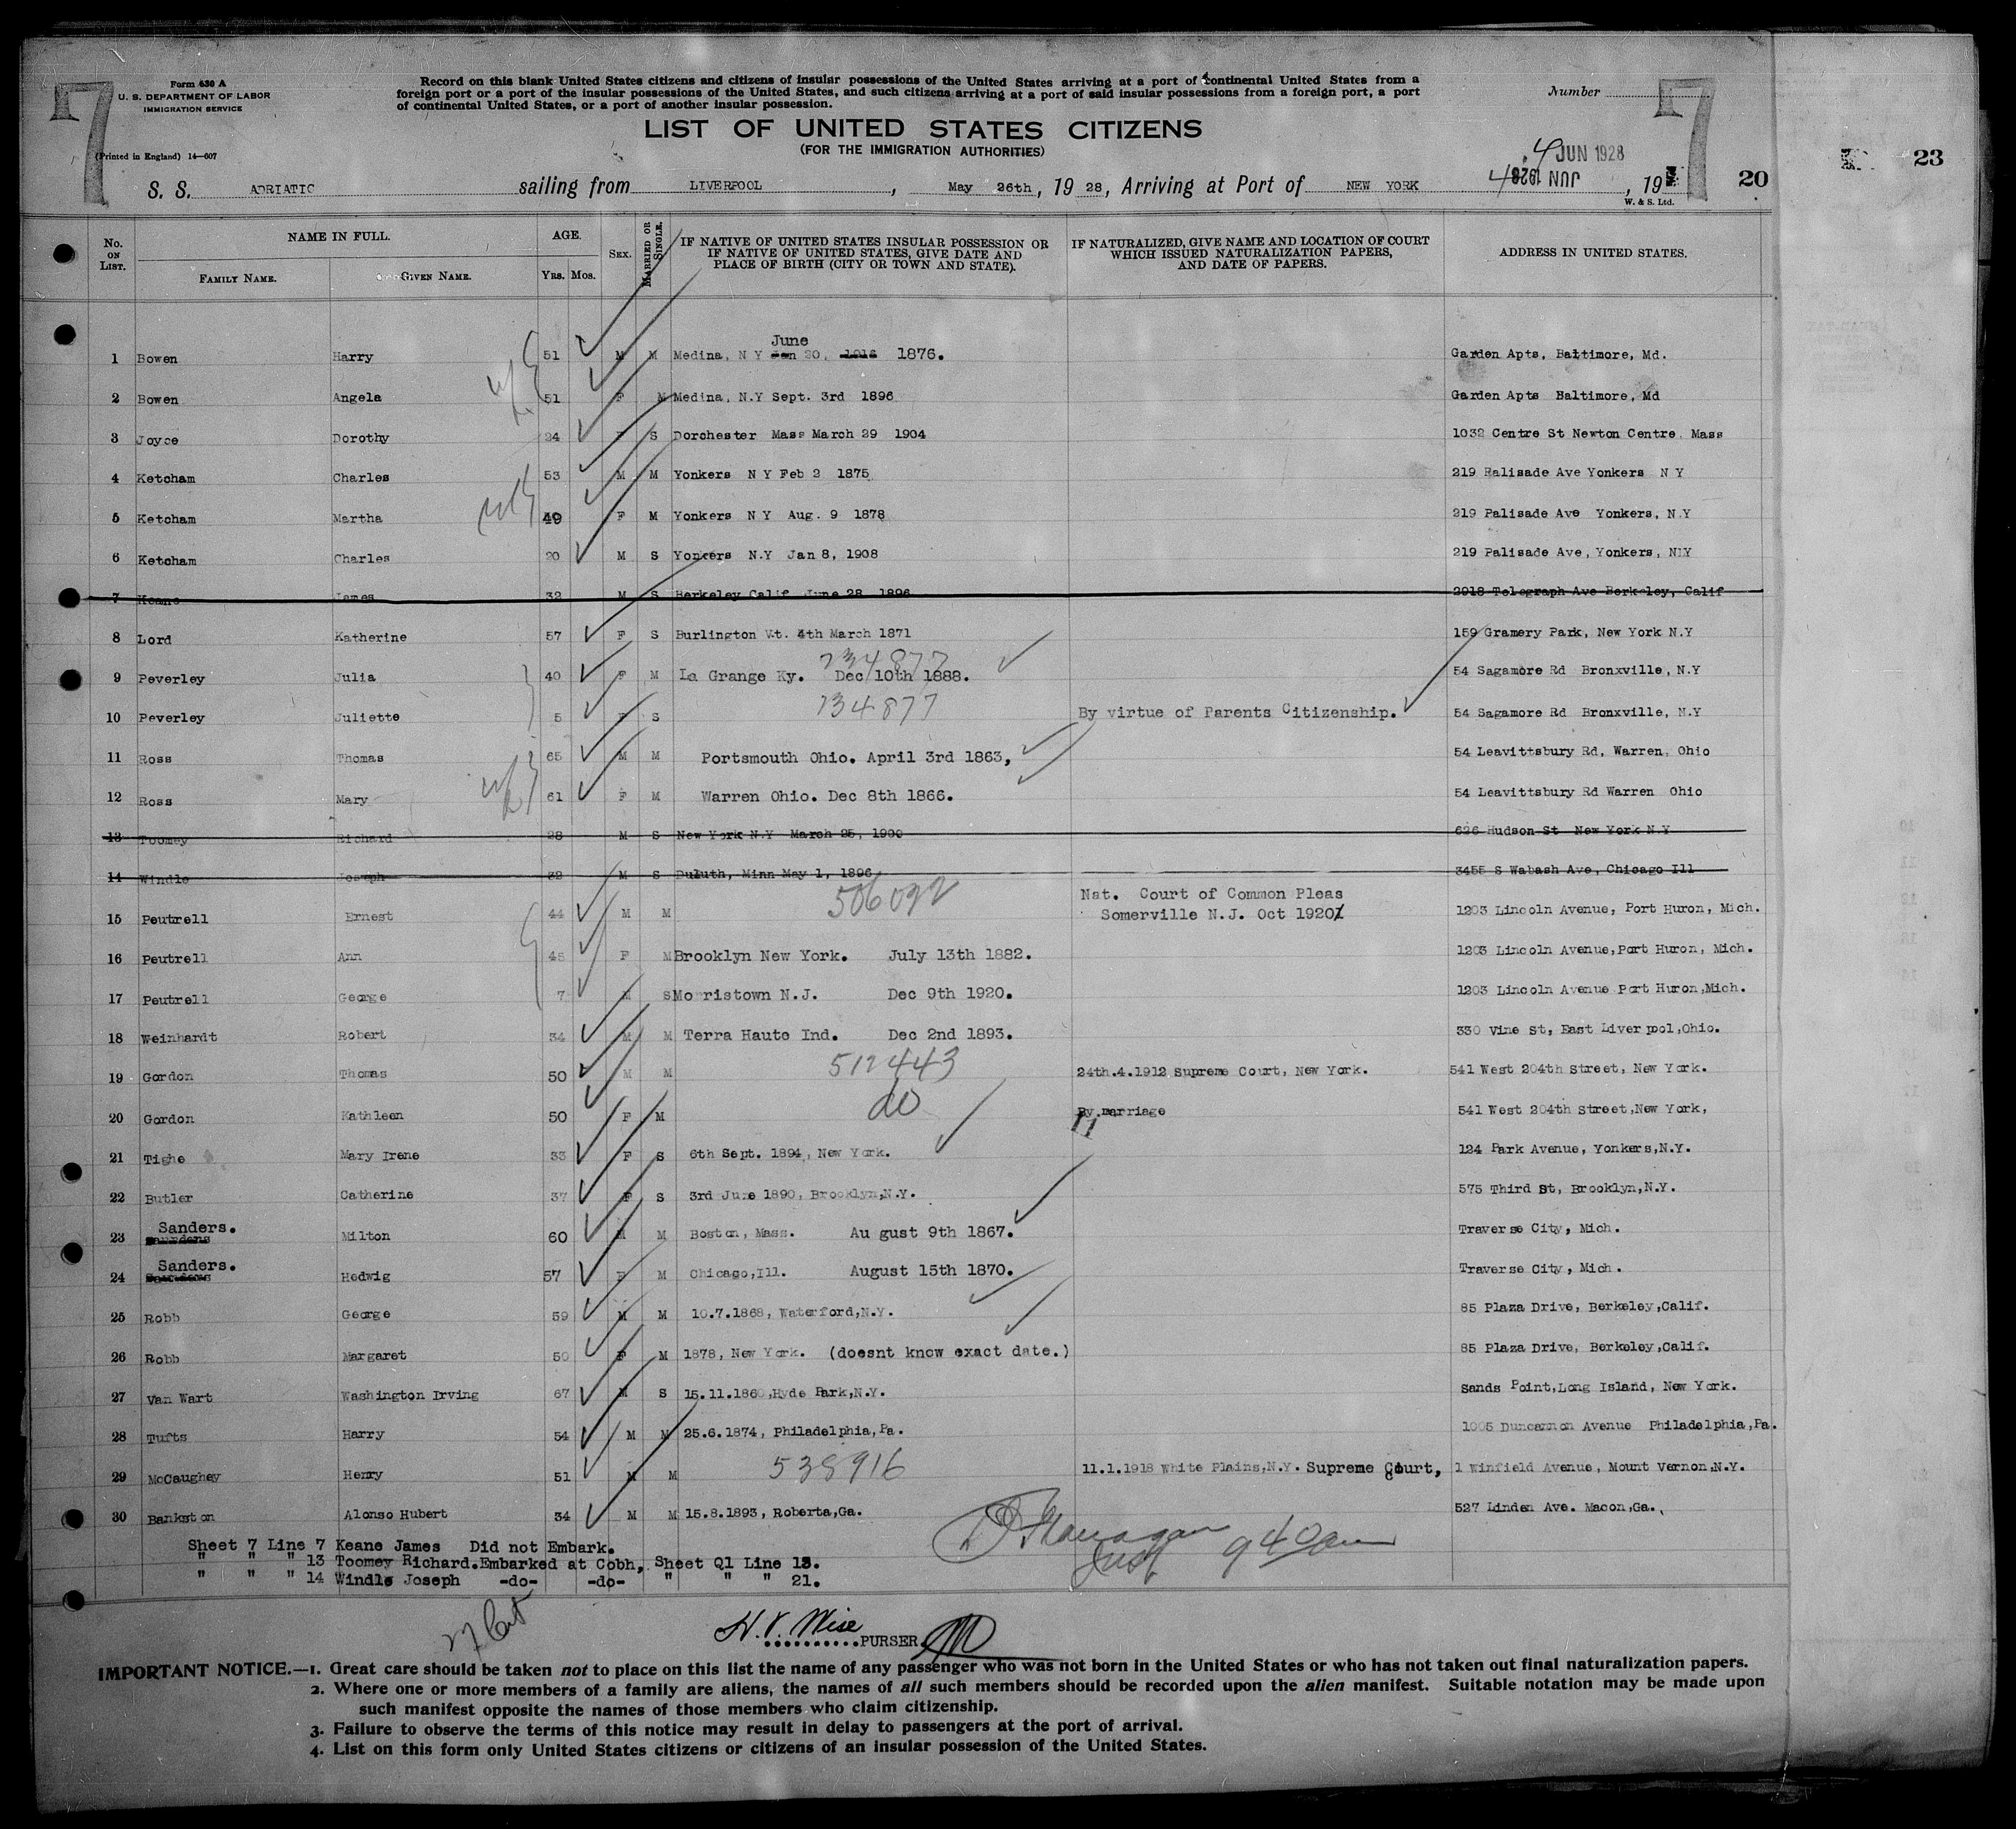 7
7
Form 630 A
U. S. DEPARTMENT OF LABOR
IMMIGRATION SERVICE
(Printed in England) 14—607
Record on this blank United States citizens and citizens of insular possessions of the United States arriving at a port of continental United States from a
foreign port or a port of the insular possessions of the United States, and such citizens arriving at a port of said insular possessions from a foreign port, a port
of continental United States, or a port of another insular possession.
Number
LIST OF UNITED STATES CITIZENS
(FOR THE IMMIGRATION AUTHORITIES)
4 JUN 1928
4 JUN 1928
23
S. S. ADRIATIC sailing from LIVERPOOL, May 26th, 1928, Arriving at Port of NEW YORK, 19 20
W. & S. Ltd.
No. ON LIST. NAME IN FULL. FAMILY NAME. GIVEN NAME. AGE. YRS. MOS. SEX. MARRIED OR SINGLE. IF NATIVE OF UNITED STATES INSULAR POSSESSION OR IF NATIVE OF UNITED STATES, GIVE DATE AND PLACE OF BIRTH (CITY OR TOWN AND STATE). IF NATURALIZED, GIVE NAME AND LOCATION OF COURT WHICH ISSUED NATURALIZATION PAPERS, AND DATE OF PAPERS. ADDRESS IN UNITED STATES.
June
1 Bowen Harry 51 M M Medina, N Y Jan 20, 1916 1876. Garden Apts, Baltimore, Md.
2 Bowen Angela 51 F M Medina, N.Y Sept. 3rd 1896 Garden Apts Baltimore, Md
3 Joyce Dorothy 24 F S Dorchester Mass March 29 1904 1032 Centre St Newton Centre, Mass
4 Ketcham Charles 53 M M Yonkers N Y Feb 2 1875 219 Palisade Ave Yonkers N Y
5 Ketcham Martha 49 F M Yonkers N Y Aug. 9 1878 219 Palisade Ave Yonkers, N.Y
6 Ketcham Charles 20 M S Yonkers N.Y Jan 8, 1908 219 Palisade Ave, Yonkers, N.Y
7 Keane James 32 M S Berkeley Calif June 28 1896 2918 Telegraph Ave Berkeley, Calif
8 Lord Katherine 57 F S Burlington Vt. 4th March 1871 159 Gramery Park, New York N.Y
734877
9 Peverley Julia 40 F M La Grange Ky. Dec 10th 1888. 54 Sagamore Rd Bronxville, N.Y
734877
10 Peverley Juliette 5 F S By virtue of Parents Citizenship. 54 Sagamore Rd Bronxville, N.Y
11 Ross Thomas 65 M M Portsmouth Ohio. April 3rd 1863, 54 Leavittsbury Rd, Warren, Ohio
12 Ross Mary 61 F M Warren Ohio. Dec 8th 1866. 54 Leavittsbury Rd Warren Ohio
13 Toomey Richard 28 M S New York N.Y March 25, 1900 626 Hudson St New York N.Y
14 Windle Joseph 32 M S Duluth, Minn May 1, 1896 3455 S Wabash Ave, Chicago Ill
506092 Nat. Court of Common Pleas
15 Peutrell Ernest 44 M M Somerville N.J. Oct 1920 1203 Lincoln Avenue, Port Huron, Mich.
16 Peutrell Ann 45 F M Brooklyn New York. July 13th 1882. 1203 Lincoln Avenue, Port Huron, Mich.
17 Peutrell George 7 M S Morristown N.J. Dec 9th 1920. 1203 Lincoln Avenue Port Huron, Mich.
18 Weinhardt Robert 34 M M Terra Haute Ind. Dec 2nd 1893. 330 Vine St, East Liverpool, Ohio.
19 Gordon Thomas 50 M M 512443 24th.4.1912 Supreme Court, New York. 541 West 204th Street, New York.
20 Gordon Kathleen 50 F M do By marriage 541 West 204th Street, New York,
21 Tighe Mary Irene 33 F S 6th Sept. 1894, New York. 124 Park Avenue, Yonkers, N.Y.
22 Butler Catherine 37 F S 3rd June 1890, Brooklyn, N.Y. 575 Third St, Brooklyn, N.Y.
Sanders.
23 Milton 60 M M Boston, Mass. August 9th 1867. Traverse City, Mich.
Sanders.
24 Hedwig 57 F M Chicago, Ill. August 15th 1870. Traverse City, Mich.
25 Robb George 59 M M 10.7.1868, Waterford, N.Y. 85 Plaza Drive, Berkeley, Calif.
26 Robb Margaret 50 F M 1878, New York. (doesnt know exact date.) 85 Plaza Drive, Berkeley, Calif.
27 Van Wart Washington Irving 67 M S 15.11.1860, Hyde Park, N.Y. Sands Point, Long Island, New York.
28 Tufts Harry 54 M M 25.6.1874, Philadelphia, Pa. 1005 Duncannon Avenue Philadelphia, Pa.
29 McCaughey Henry 51 M M 538916 11.1.1918 White Plains, N.Y. Supreme Court, 1 Winfield Avenue, Mount Vernon, N.Y.
30 Bankston Alonso Hubert 34 M M 15.8.1893, Roberta, Ga. 527 Linden Ave. Macon, Ga.
Sheet 7 Line 7 Keane James Did not Embark.
" " " 13 Toomey Richard. Embarked at Cobh, Sheet Q1 Line 18.
" " " 14 Windle Joseph -do- -do- " " " 21.
D Flanagan
Insp. 9 40 am
H. V. Wise
PURSER
IMPORTANT NOTICE.—1. Great care should be taken not to place on this list the name of any passenger who was not born in the United States or who has not taken out final naturalization papers.
2. Where one or more members of a family are aliens, the names of all such members should be recorded upon the alien manifest. Suitable notation may be made upon
such manifest opposite the names of those members who claim citizenship.
3. Failure to observe the terms of this notice may result in delay to passengers at the port of arrival.
4. List on this form only United States citizens or citizens of an insular possession of the United States.